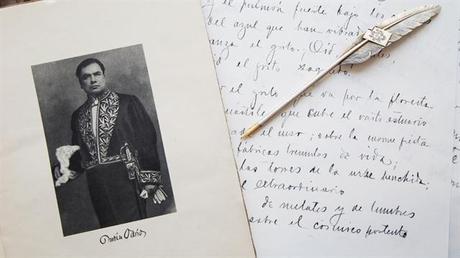 Rubén Darío
y el pulmón fuerte bajo los
del azul que han vibrado
el grito: Oíd
el grito sagrado.
el grito que va por la floresta
que cubre el vasto estuario
sobre la enorme fiesta
fábricas trémulas de vida;
las torres de la urbe henchida;
extraordinario
de metales y de lumbres
sobre el cósmico portento